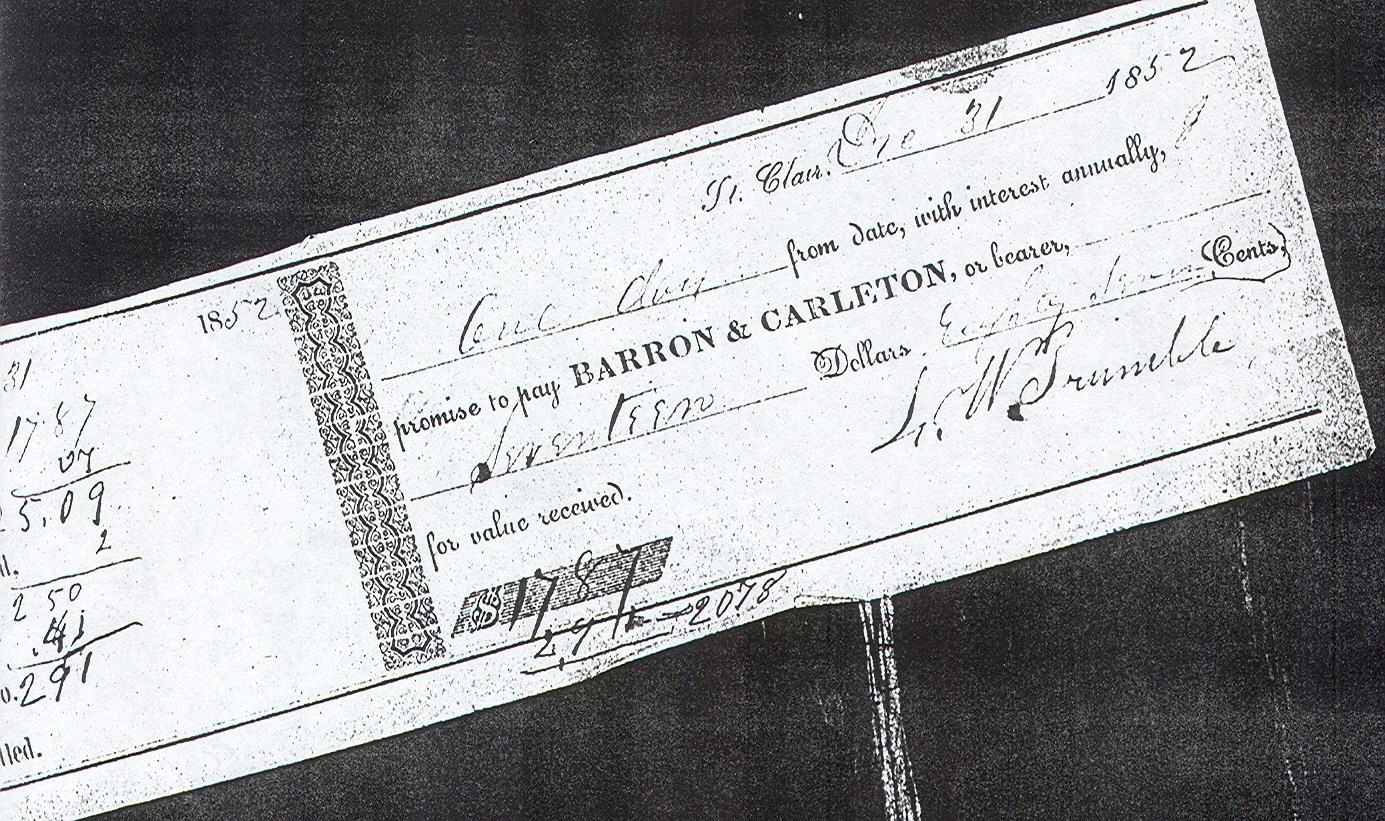 1852
31
1787
07
5.09
2
2 50
.41
291
lled.
St. Clair, Dec 31 1852
One day from date, with interest annually, I
promise to pay BARRON & CARLETON, or bearer,
Seventeen Dollars Eighty Seven Cents,
for value received. L. W. Trumble
$1787
2,91 = 2078